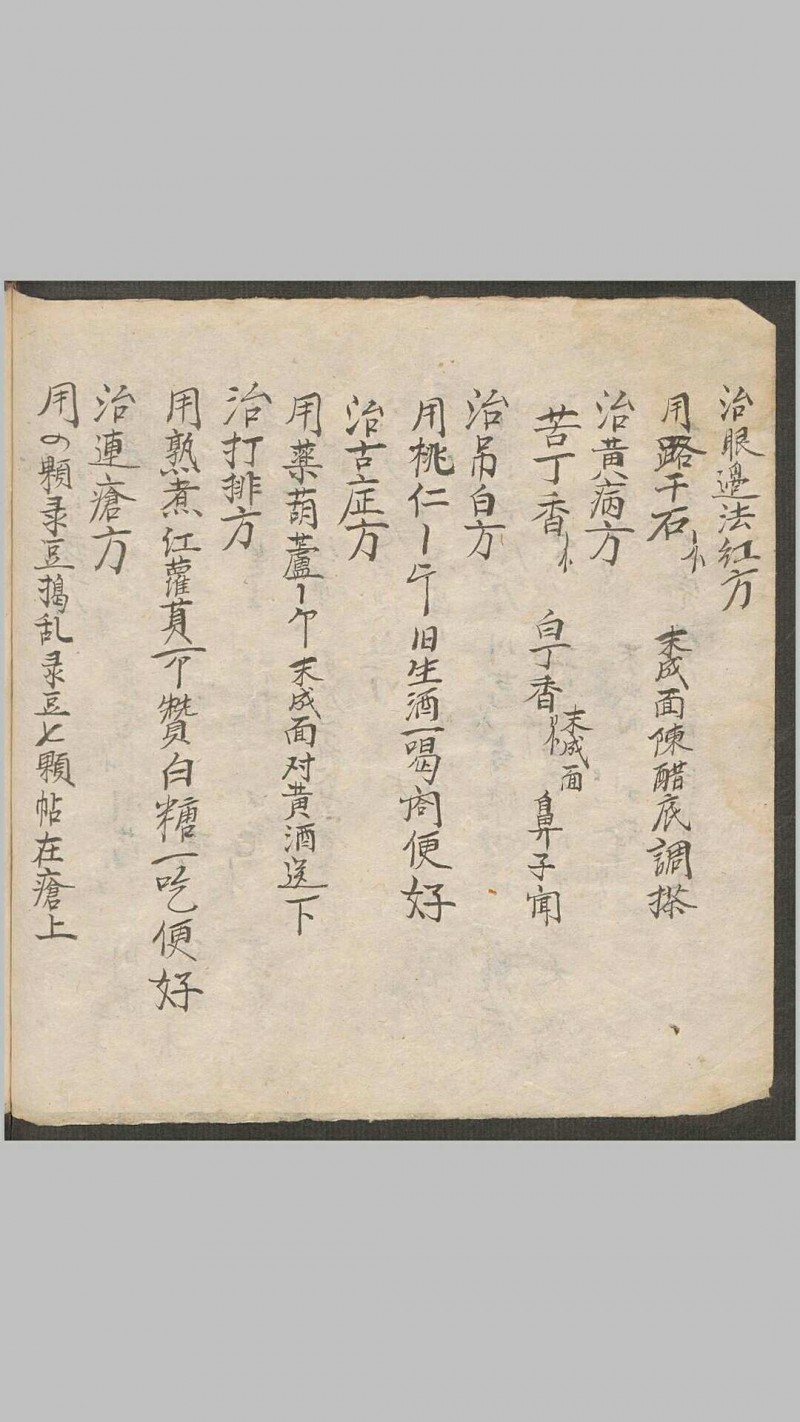 治眼邊法红方
用路干石 末成面陳醋底調搽
治黄病方
苦丁香 白丁香 末成面 鼻子闻
治吊白方
用桃仁 旧生酒一喝 便好
治古症方
用薬葫蘆 末成面对黄酒送下
治打排方
用熟煮红蘿蔔 贊白糖一吃便好
治連瘡方
用 顆录豆搗乱录豆七顆帖在瘡上